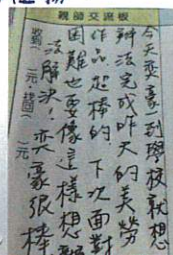 親師交流板
今天奕豪一到學校就想
辦法完成昨天的美勞
作品超棒的，下次面對
困難也要像這樣想
法解決！奕豪很棒
元
元